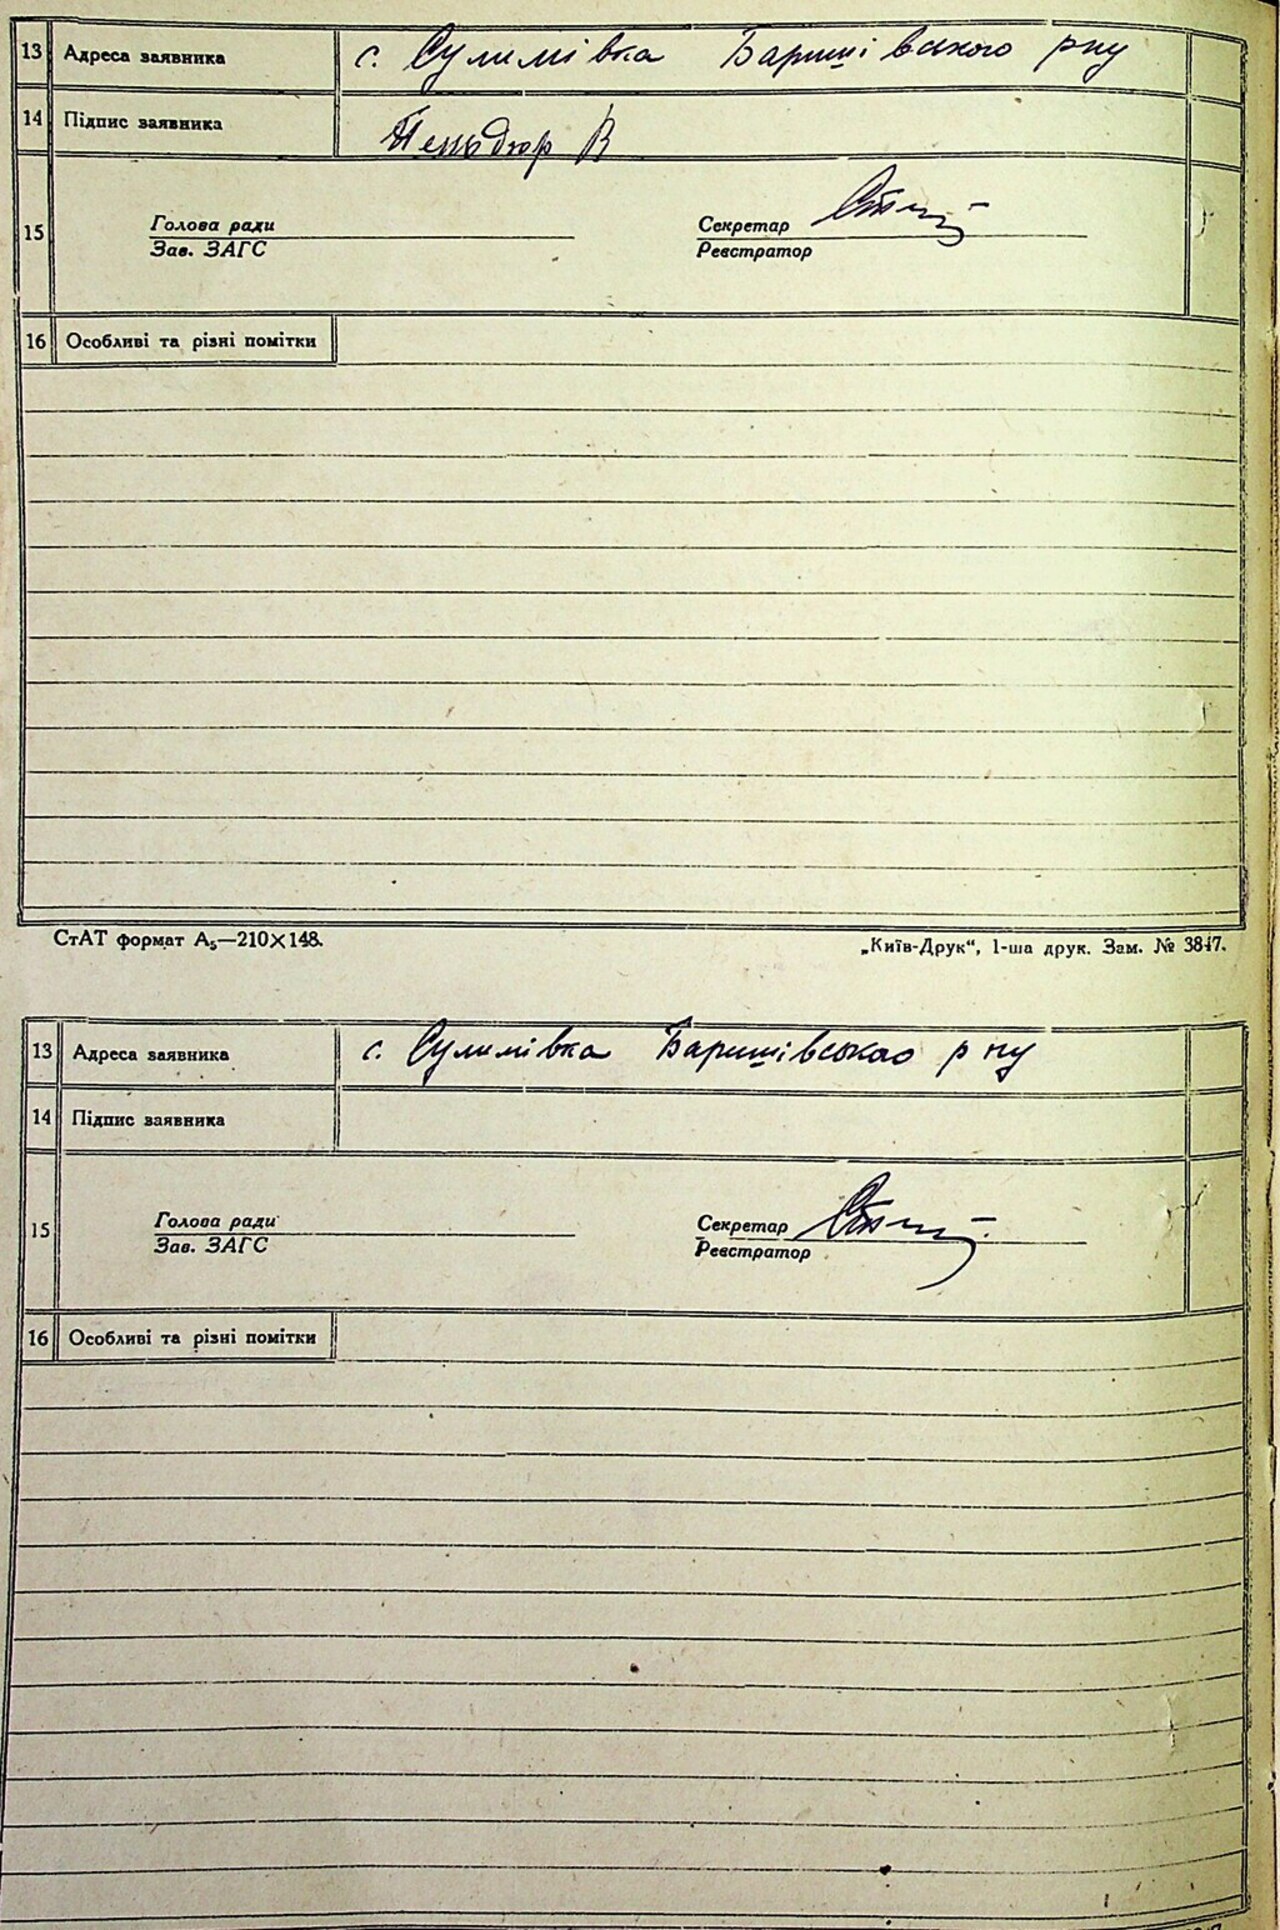 13 Адреса заявника с. Сулимівка Баришівського рну
14 Підпис заявника В
15 Голова ради Секретар
Зав. ЗАГС Реєстратор
16 Особливі та різні помітки
СтАТ формат А₅—210×148. „Київ-Друк“, 1-ша друк. Зам. № 3847.
13 Адреса заявника с. Сулимівка Баришівського рну
14 Підпис заявника
15 Голова ради Секретар
Зав. ЗАГС Реєстратор
16 Особливі та різні помітки